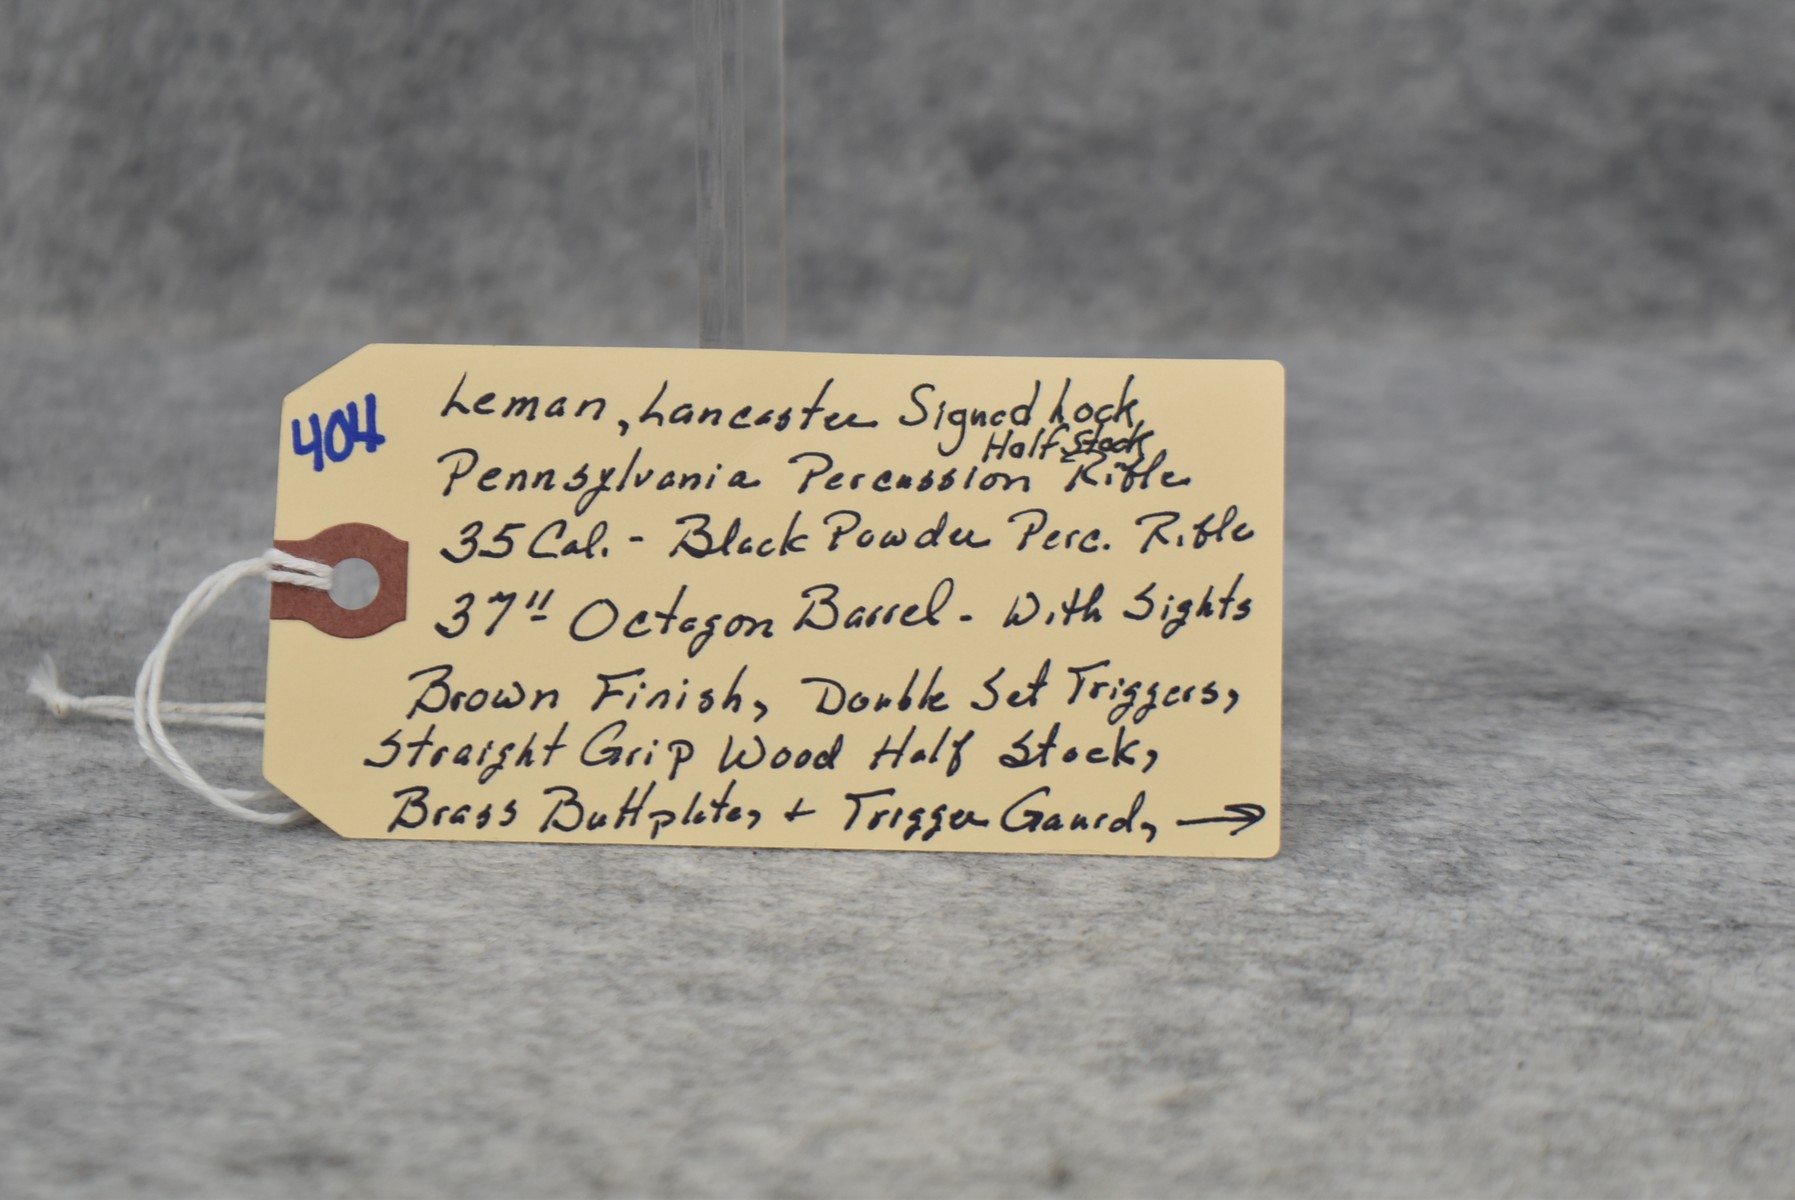 404
Leman, Lancaster Signed Lock
Half Stock
Pennsylvania Percussion Rifle
35 Cal. - Black Powder Perc. Rifle
37" Octagon Barrel - With Sights
Brown Finish, Double Set Triggers,
Straight Grip Wood Half Stock,
Brass Buttplate, + Trigger Gaurd, →